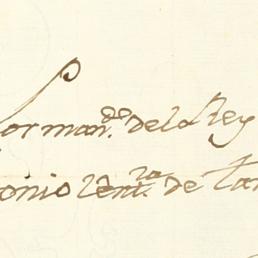 Por man.do del Rey
onio Lent.la de Tar